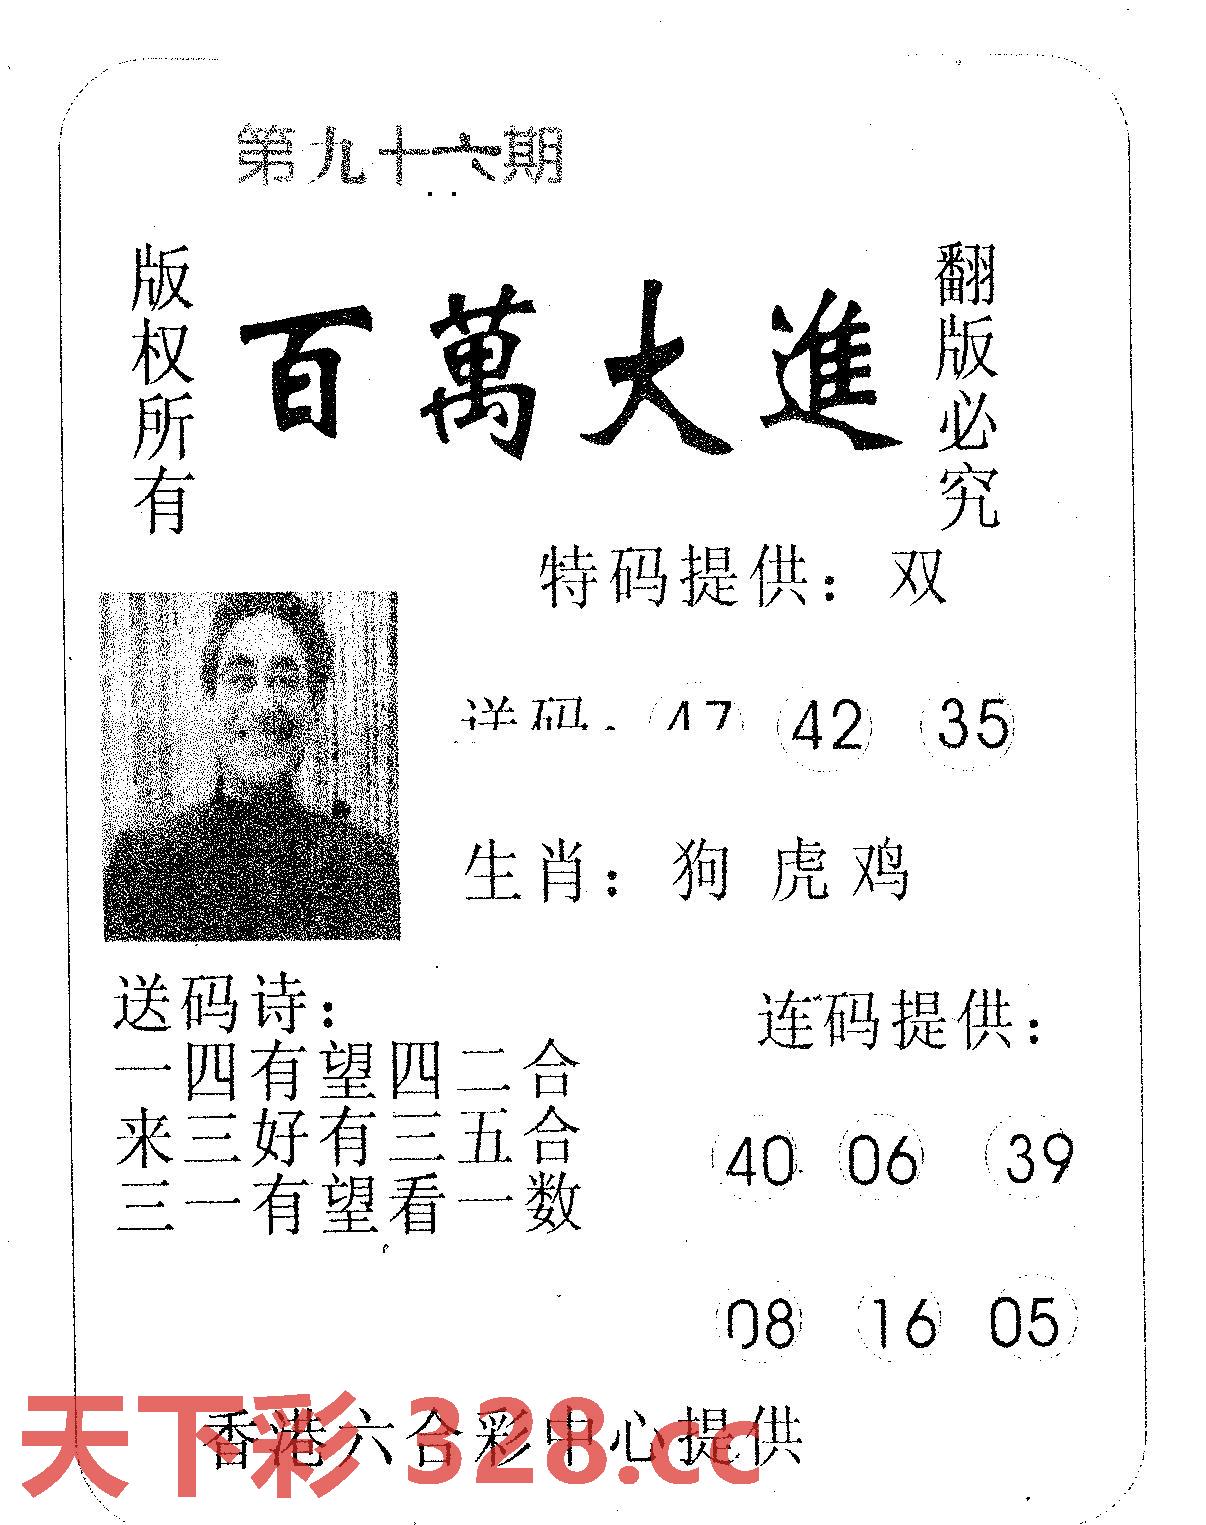 第九十六期
版权所有
百萬大進
翻版必究
特码提供：双
送码：47 42 35
生肖：狗 虎 鸡
送码诗：
一四有望四二合
来三好有三五合
三一有望看一数
连码提供：
40 06 39
08 16 05
香港六合彩中心提供
天下彩 328.cc